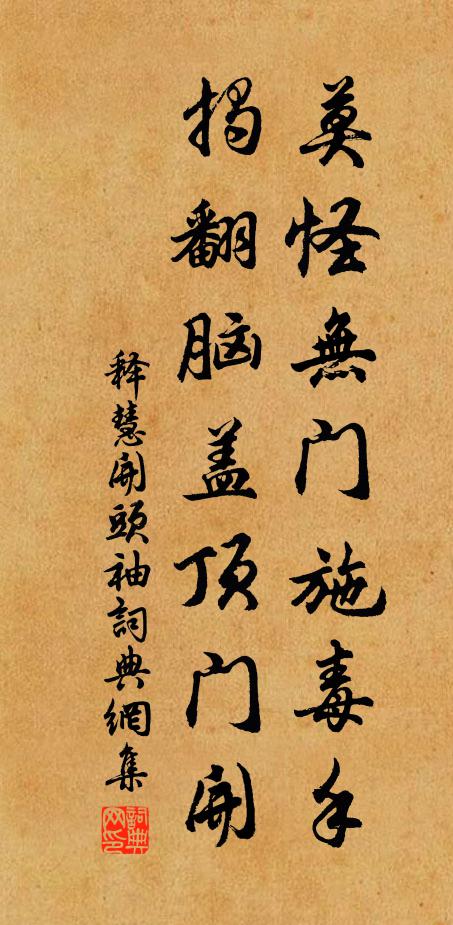 莫怪無门施毒手
揭翻脑盖顶门開
释慧開頭袖詞典網集
詞典网印